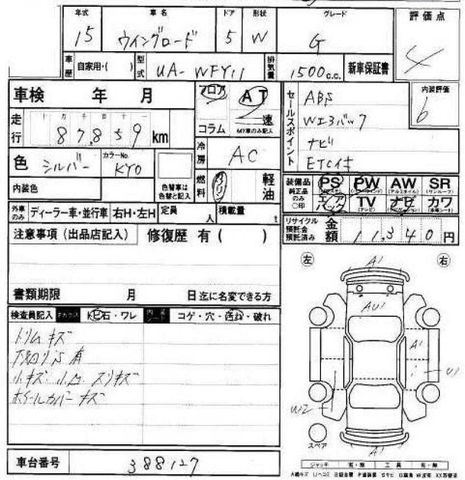 年式 車名 ドア 形状 グレード 評価点
15 ウイングロード 5 W G 4
車歴 自家用・( ) 型式 UA-WFY11 排気量 1500c.c. 新車保証書
内装評価
b
車検 年 月
フロア AT
コラム 速
セールスポイント
ABS
Wエアバック
ナビ
ETC付
走行 87,859 km
色 シルバー カラーNo. KY0
冷房 AC
内装色
色替車は色替と記入
燃料 ガソリン 軽油
装備品 純正品のみ○印
PS PW AW SR
エアバック TV ナビ カワ
外車のみ ディーラー車・並行車 右H・左H 定員 人 積載量 t
リサイクル預託金 預託済み 金額 11,340円
注意事項(出品店記入) 修復歴 有( )
左 右
書類期限 月 日迄に名変できる方
検査員記入 Fガラス キズ・石・ワレ 内装シート コゲ・穴・汚れ・破れ
トリムキズ
下回りS有
小キズ 小凹 スリキズ
ホイールカバーキズ
A1
AU1
A1
U1
W2
A1
スペア
車台番号 388127
ジャッキ 有・無 工具 有・無